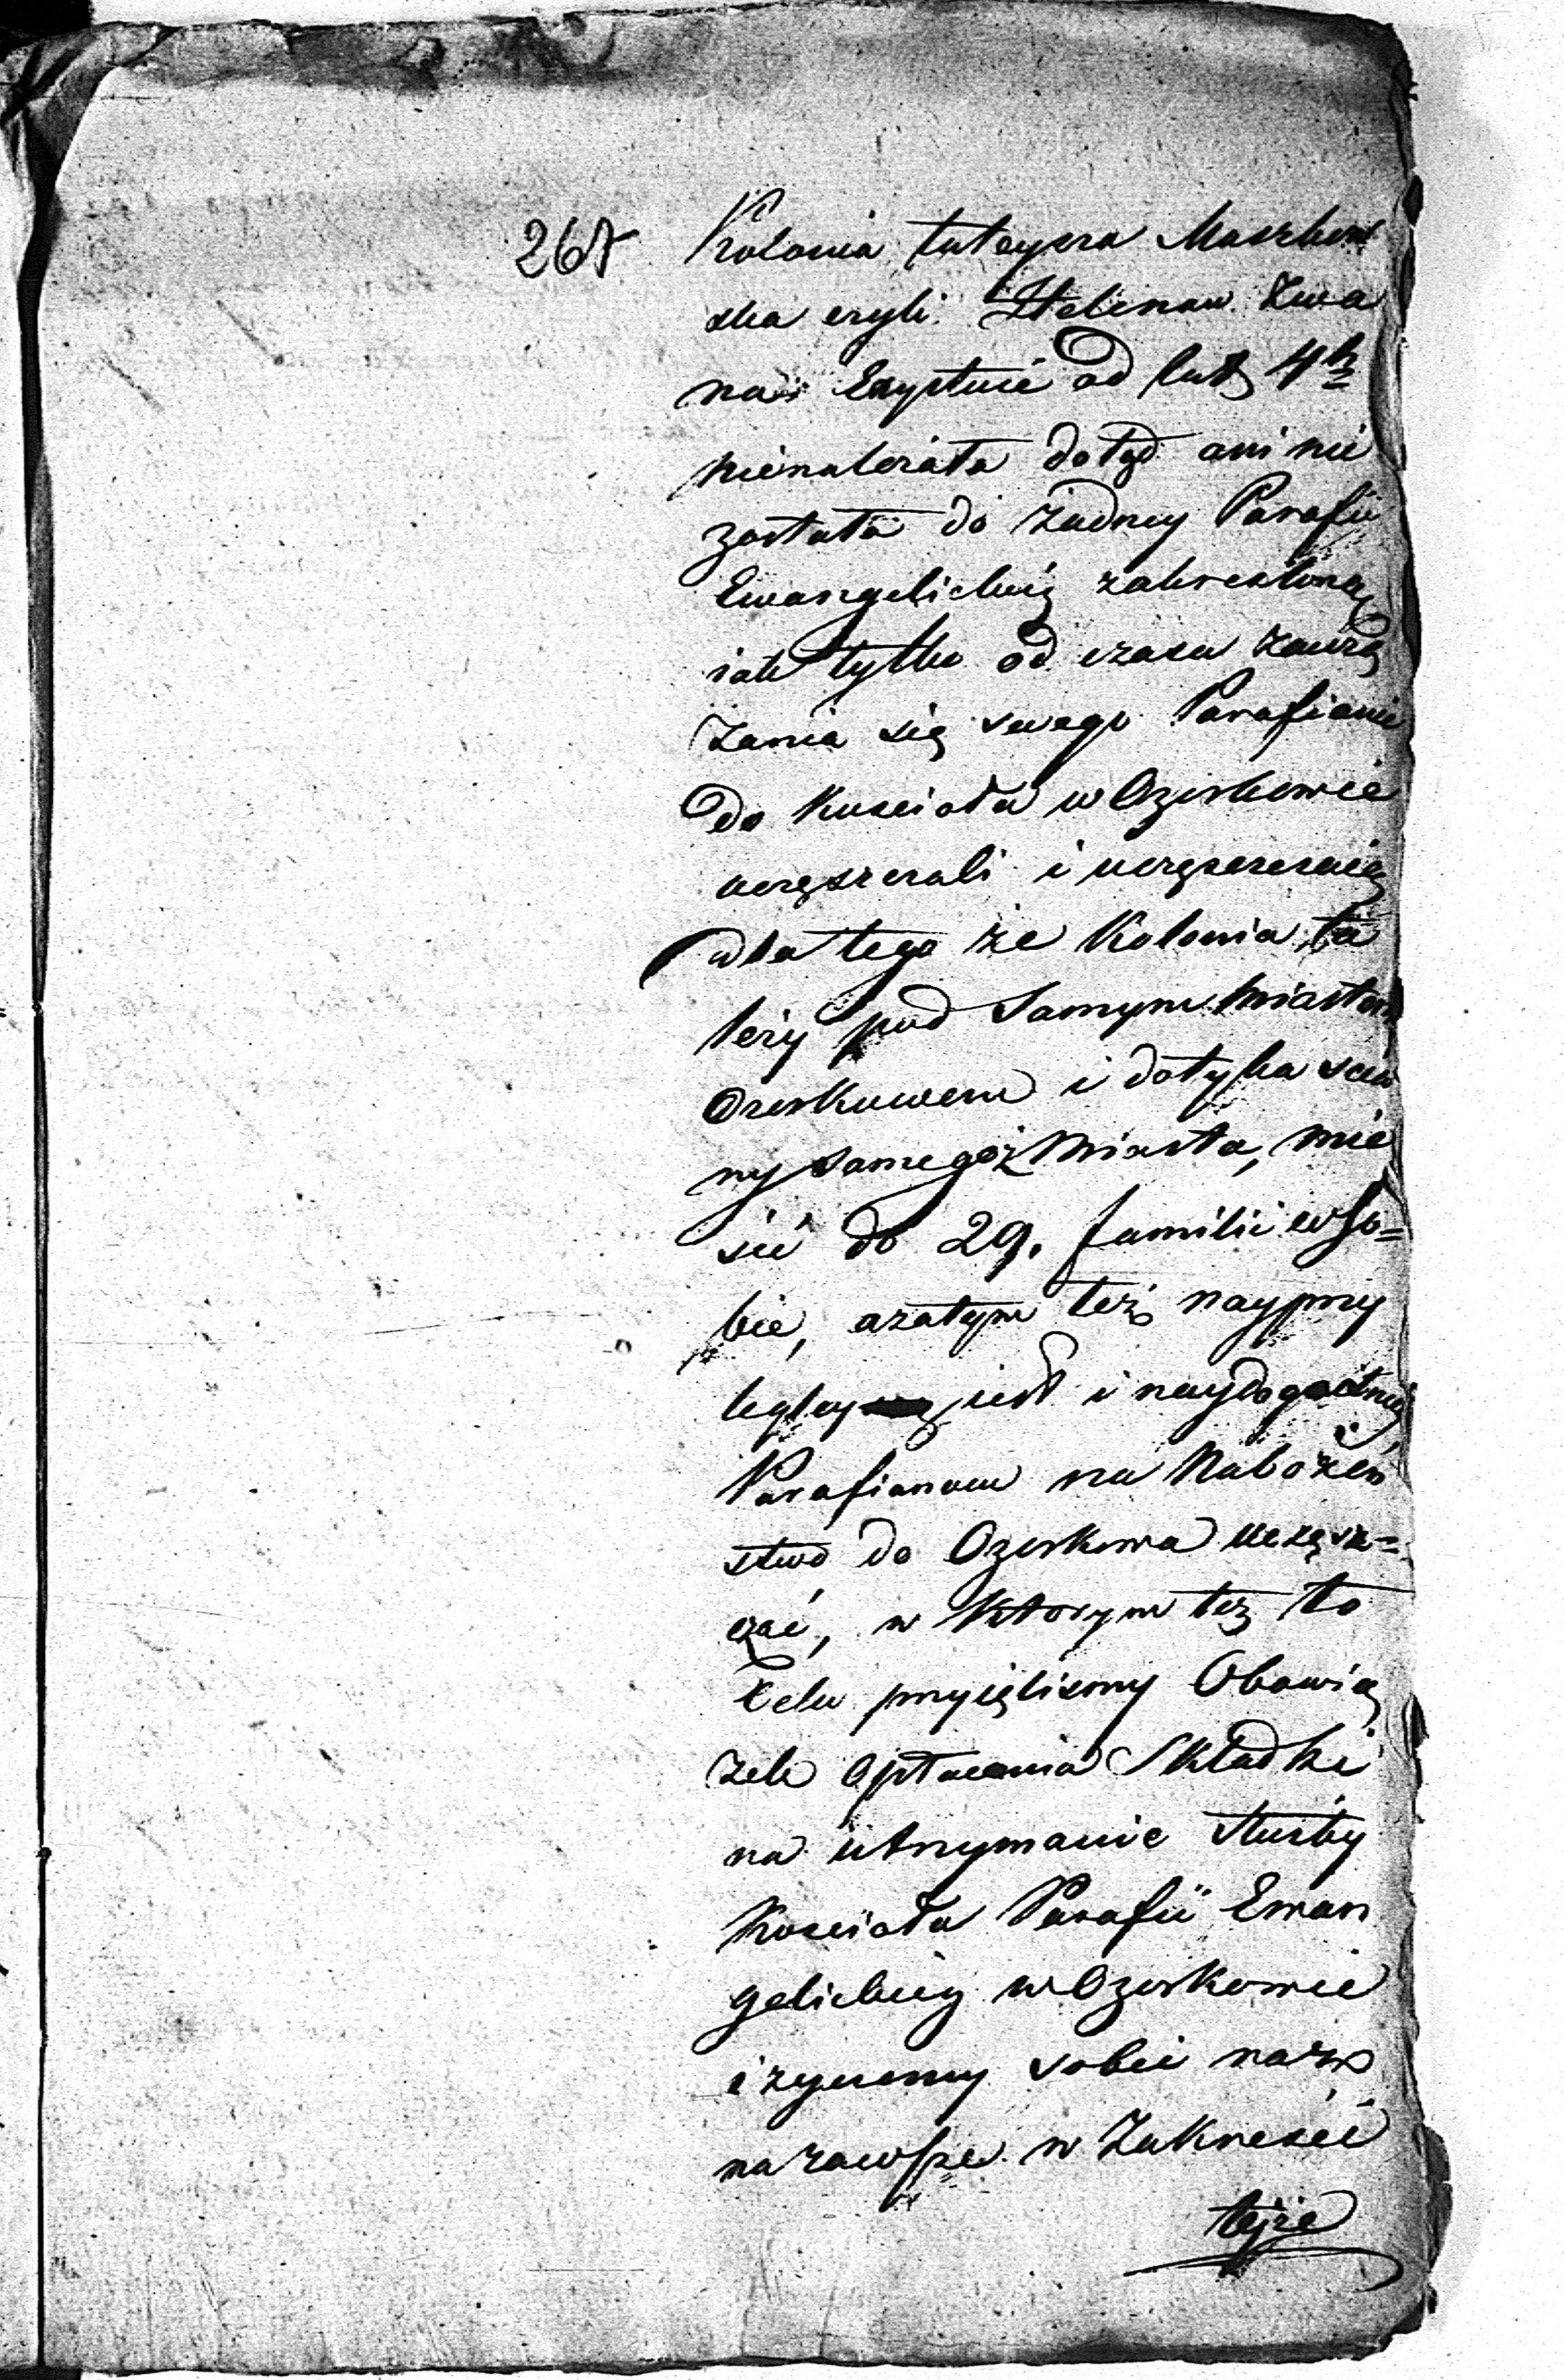 267 Kolonia tuteysza Maszkow
ska czyli Helenow zwa
na Exystuie od lat 4ch
nienależała dotąd ani nie
została do żadney Parafii
Ewangelickiey zakreśloną
iak tylko od czasu zawią
zania się swego Parafianie
do Kościoła w Ozorkowie
uczęszczali i uczęszczaią
dla tego że Kolonia ta
leży pod Samym Miastem
Ozorkowem i dotyka scia
ny samegoż Miasta, mie
ści do 29. familii w so=
bie, a zatym też nayprzy
legley iest i naydogodniey
Parafianom na Nabożeń
stwo do Ozorkowa uczęsz=
czać, w którym też to
Celu przyięliśmy Obowią
zek opłacenia Składki
na utrzymanie służby
Kościoła Parafii Ewan
gelickiey w Ozorkowie
i życzemy sobie raz
na zawsze w Zakresie
teyże